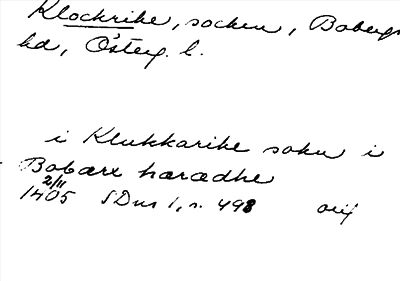 Klockrike, socken, Bobergs
hd, Österg. l.
i Klukkarike sokn i
Bobære hæradhe
2/11
1405 SDns 1, s. 498 orig